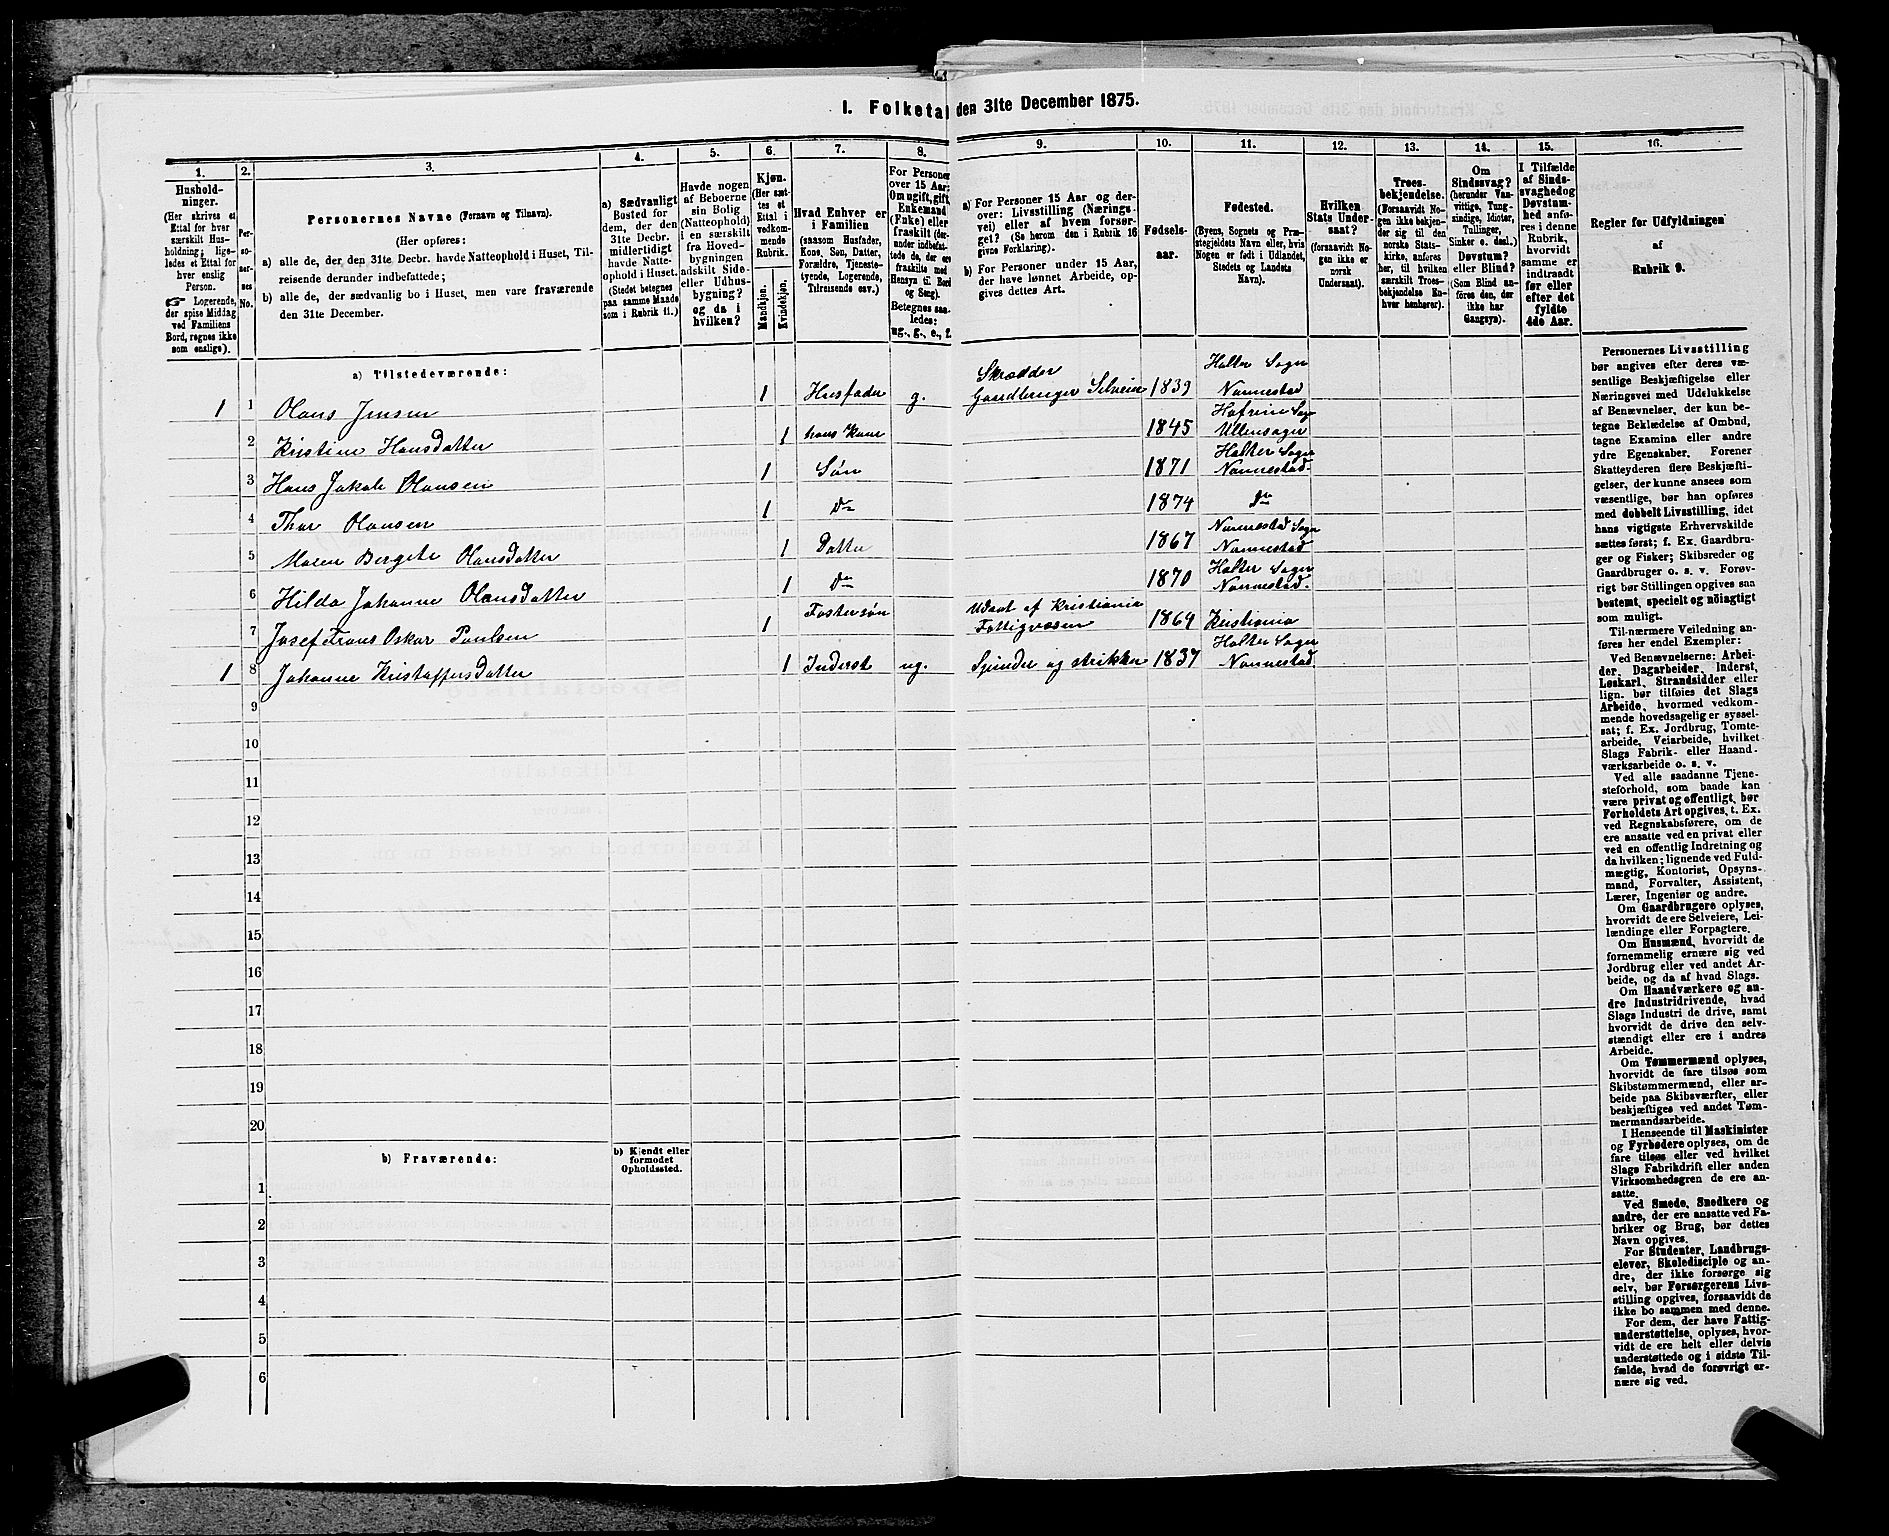 I. Folketal den 31te December 1875.
1. 2. 3. 4. 5. 6. 7. 8. 9. 10. 11. 12. 13. 14. 15. 16.
Hushold-
ninger.
(Her skrives et
Ettal for hver
særskilt Hus-
holdning; lige-
ledes et Ettal for
hver enslig
Person.
☞ Logerende,
der spise Middag
ved Familiens
Bord, regnes ikke
som enslige).
Per-
so-
ner-
nes
No.
Personernes Navne (Fornavn og Tilnavn).
(Her opføres:
a) alle de, der den 31te Decbr. havde Natteophold i Huset, Til-
reisende derunder indbefattede;
b) alle de, der sædvanlig bo i Huset, men vare fraværende
den 31te December.
a) Sædvanligt
Bosted for
dem, der den
31te Decbr.
midlertidigt
havde Natte-
ophold i Huset.
(Stedet betegnes
paa samme Maade
som i Rubrik 11.)
Havde nogen
af Beboerne
sin Bolig
(Natteophold)
i en særskilt
fra Hoved-
bygningen
adskilt Side-
eller Udhus-
bygning?
og da i
hvilken?
Kjøn.
(Her sæt-
tes et
Ettal i
vedkom-
mende
Rubrik.
Mandkjøn.
Kvindekjøn.
Hvad Enhver er
i Familien
(saasom Husfader,
Kone, Søn, Datter,
Forældre, Tjeneste-
tyende, Logerende,
Tilreisende osv.)
For Personer
over 15 Aar:
Om ugift, gift,
Enkemand
(Enke) eller
fraskilt (der-
under indbefat-
tede de, der ere
fraskilte med
Hensyn til Bord
og Seng).
Betegnes saa-
ledes:
ug., g., e., f.
a) For Personer 15 Aar og der-
over: Livsstilling (Nærings-
vei) eller af hvem forsør-
get? (Se herom den i Rubrik 16
givne Forklaring).
b) For Personer under 15 Aar,
der have lønnet Arbeide, op-
gives dettes Art.
Fødsels-
aar.
Fødested.
(Byens, Sognets og Præ-
stegjeldets Navn eller, hvis
Nogen er født i Udlandet,
Stedets og Landets
Navn).
Hvilken
Stats Under-
saat?
(forsaavidt No-
gen ikke er
norsk
Undersaat).
Troes-
bekjendelse.
(Forsaavidt No-
gen ikke bekjen-
der sig til den
norske Stats-
kirke, anføres
her, til hvilken
særskilt Troes-
bekjendelse En-
hver henhører).
Om
Sindssvag?
(herunder Van-
vittige, Tung-
sindige, Idioter,
Tullinger,
Sinker o. desl.)
Døvstum?
eller Blind?
(Som Blind an-
føres den, der
ikke har
Gangsyn).
I Tilfælde
af Sinds-
svaghed og
Døvstum-
hed anfø-
res i denne
Rubrik,
hvorvidt
samme er
indtraadt
før eller
efter det
fyldte
4de Aar.
Regler for Udfyldningen
af
Rubrik 9.
a) Tilstedeværende:
1 1 Olaus Jensen 1 Husfader g. Skrædder Gaardbruger Selveier 1839 Holter Sogn Nannestad
2 Kristine Hansdatter 1 hans Kone 1845 Ullensager
3 Hans Jakob Olausen 1 Søn 1871 Holter Sogn Nannestad
4 Thor Olausen 1 do 1874 do
5 Maren Bergete Olausdatter 1 Datter 1867 Nannestad Sogn Nannestad
6 Hilda Johanne Olausdatter 1 do 1870 Holter Sogn Nannestad
7 Josef Frans Oskar Paulsen 1 Fostersøn Udsat af Kristiania Fattigvæsen 1864 Kristiania
1 8 Johanne Kristoffersdatter 1 Inderst ug. Spinder og strikker 1837 Holter Sogn Nannestad
9
10
11
12
13
14
15
16
17
18
19
20
b) Fraværende:
b) Kjendt eller
formodet
Opholdssted.
1
2
3
4
5
6
Personernes Livsstilling
bør angives efter deres væ-
sentlige Beskjæftigelse eller
Næringsvei med Udelukkelse
af Benævnelser, der kun be-
tegne Beklædelse af Ombud,
tagne Examina eller andre
ydre Egenskaber. Forener
Skatteyderen flere Beskjæfti-
gelser, der kunne ansees som
væsentlige, bør han opføres
med dobbelt Livsstilling, idet
hans vigtigste Erhvervskilde
sættes først; f. Ex. Gaardbru-
ger og Fisker; Skibsreder og
Gaardbruger o. s. v. Forøv-
rigt bør Stillingen opgives saa
bestemt, specielt og nöiagtigt
som muligt.
Til-nærmere Veiledning an-
føres her endel Exempler:
Ved Benævnelserne: Arbei-
der, Dagarbeider, Inderst,
Løskarl, Strandsidder eller
lign. bør tilføies det Slags
Arbeide, hvormed vedkom-
mende hovedsagelig er syssel-
sat; f. Ex. Jordbrug, Tomte-
arbeide, Veiarbeide, hvilket
Slags Fabrik- eller Haand-
værksarbeide o. s. v.
Ved alle saadanne Tjene-
steforhold, som baade kan
være privat og offentligt, bør
Forholdets Art opgives, t. Ex.
ved Regnskabsførere, om de
ere ansatte ved en privat eller
ved en offentlig Indretning og
da hvilken; lignende ved Fuld-
mægtig, Kontorist, Opsyns-
mand, Forvalter, Assistent,
Lærer, Ingeniør og andre.
Om Gaardbrugere oplyses,
hvorvidt de ere Selveiere, Lei-
lændinge eller Forpagtere.
Om Husmænd, hvorvidt de
fornemmelig ernære sig ved
Jordbrug eller ved andet Ar-
beide, og da af hvad Slags.
Om Haandværkere og an-
dre Industridrivende, hvad
Slags Industri de drive, samt
hvorvidt de drive den selv-
stændigt eller ere i andres
Arbeide.
Om Tømmermænd oplyses,
hvorvidt de fare tilsøs som
Skibstømmermænd, eller ar-
beide paa Skibsværfter, eller
beskjæftiges ved andet Tøm-
mermandsarbeide.
I Henseende til Maskinister
og Fyrbødere oplyses, om de
fare tilsøs eller ved hvilket
Slags Fabrikdrift eller anden
Virksomhedsgren de ere an-
satte.
Ved Smede, Snedkere og
andre, der ere ansatte ved Fa-
briker og Brug, bør dettes
Navn opgives.
For Studenter, Landbrugs-
elever, Skoledisciple og an-
dre, der ikke forsørge sig
selv, bør Forsørgerens Livs-
stilling opgives, forsaavidt de
ikke bo sammen med denne.
For dem, der have Fattig-
understøttelse, oplyses, hvor-
vidt de ere helt eller delvis
understøttede og i sidste Til-
fælde, hvad de forøvrigt er-
nære sig ved.